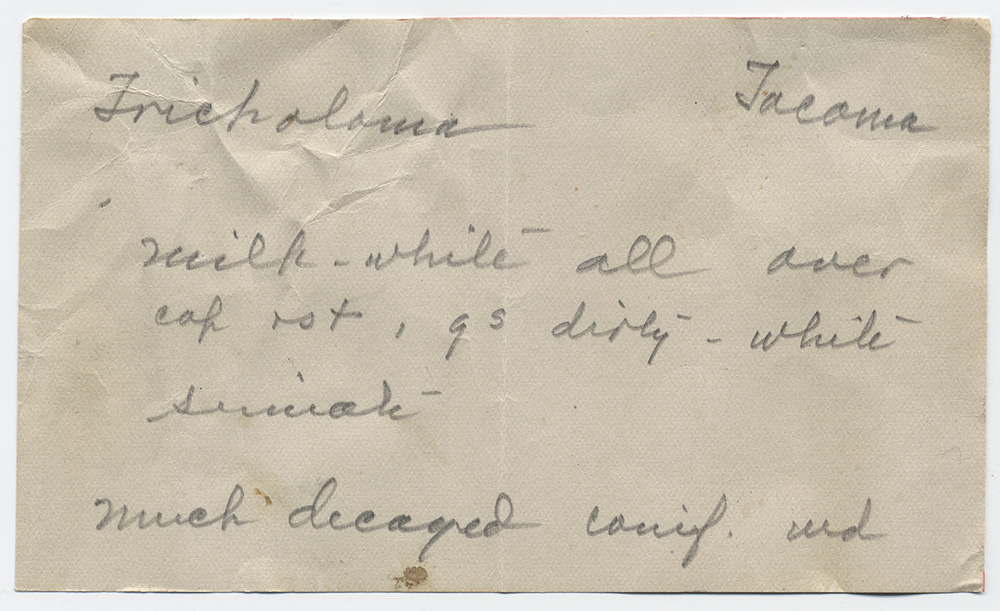 Tricholoma Tacoma
milk-white all over
cap , gs dirty - white
sinuate
much decayed conif. wd